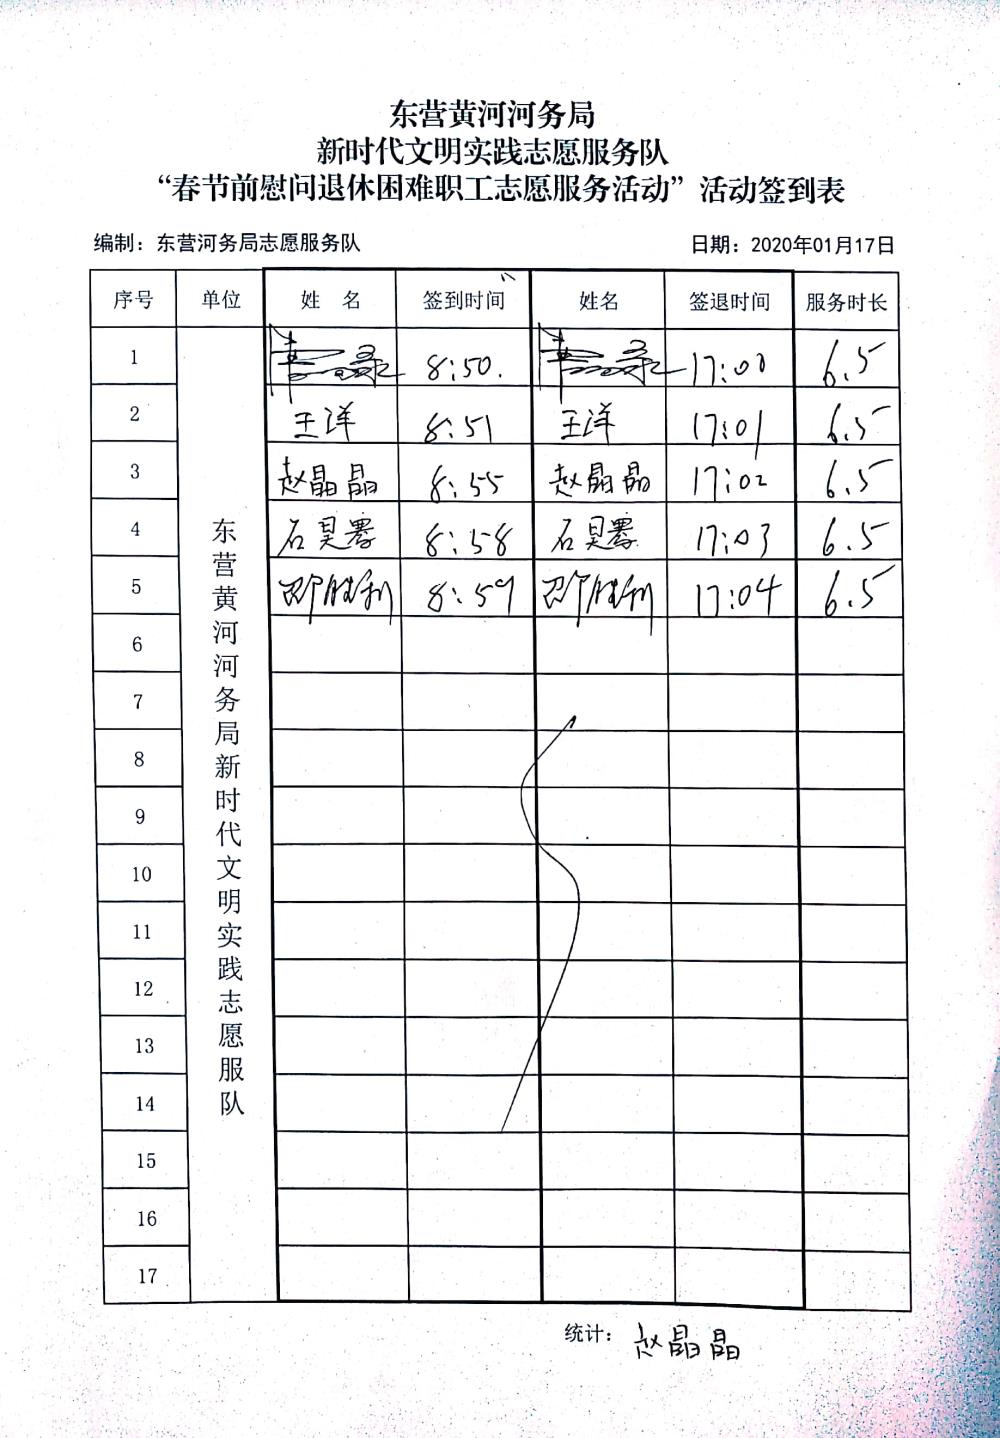 东营黄河河务局
新时代文明实践志愿服务队
“春节前慰问退休困难职工志愿服务活动”活动签到表
编制：东营河务局志愿服务队 日期：2020年01月17日
序号 单位 姓 名 签到时间 姓名 签退时间 服务时长
东营黄河河务局新时代文明实践志愿服队
1 8:50. 17:00 6.5
2 王洋 8:51 王洋 17:01 6.5
3 赵晶晶 8:55 赵晶晶 17:02 6.5
4 石昊 8:58 石昊 17:03 6.5
5 邵胜利 8:59 邵胜利 17:04 6.5
6
7
8
9
10
11
12
13
14
15
16
17
统计：赵晶晶